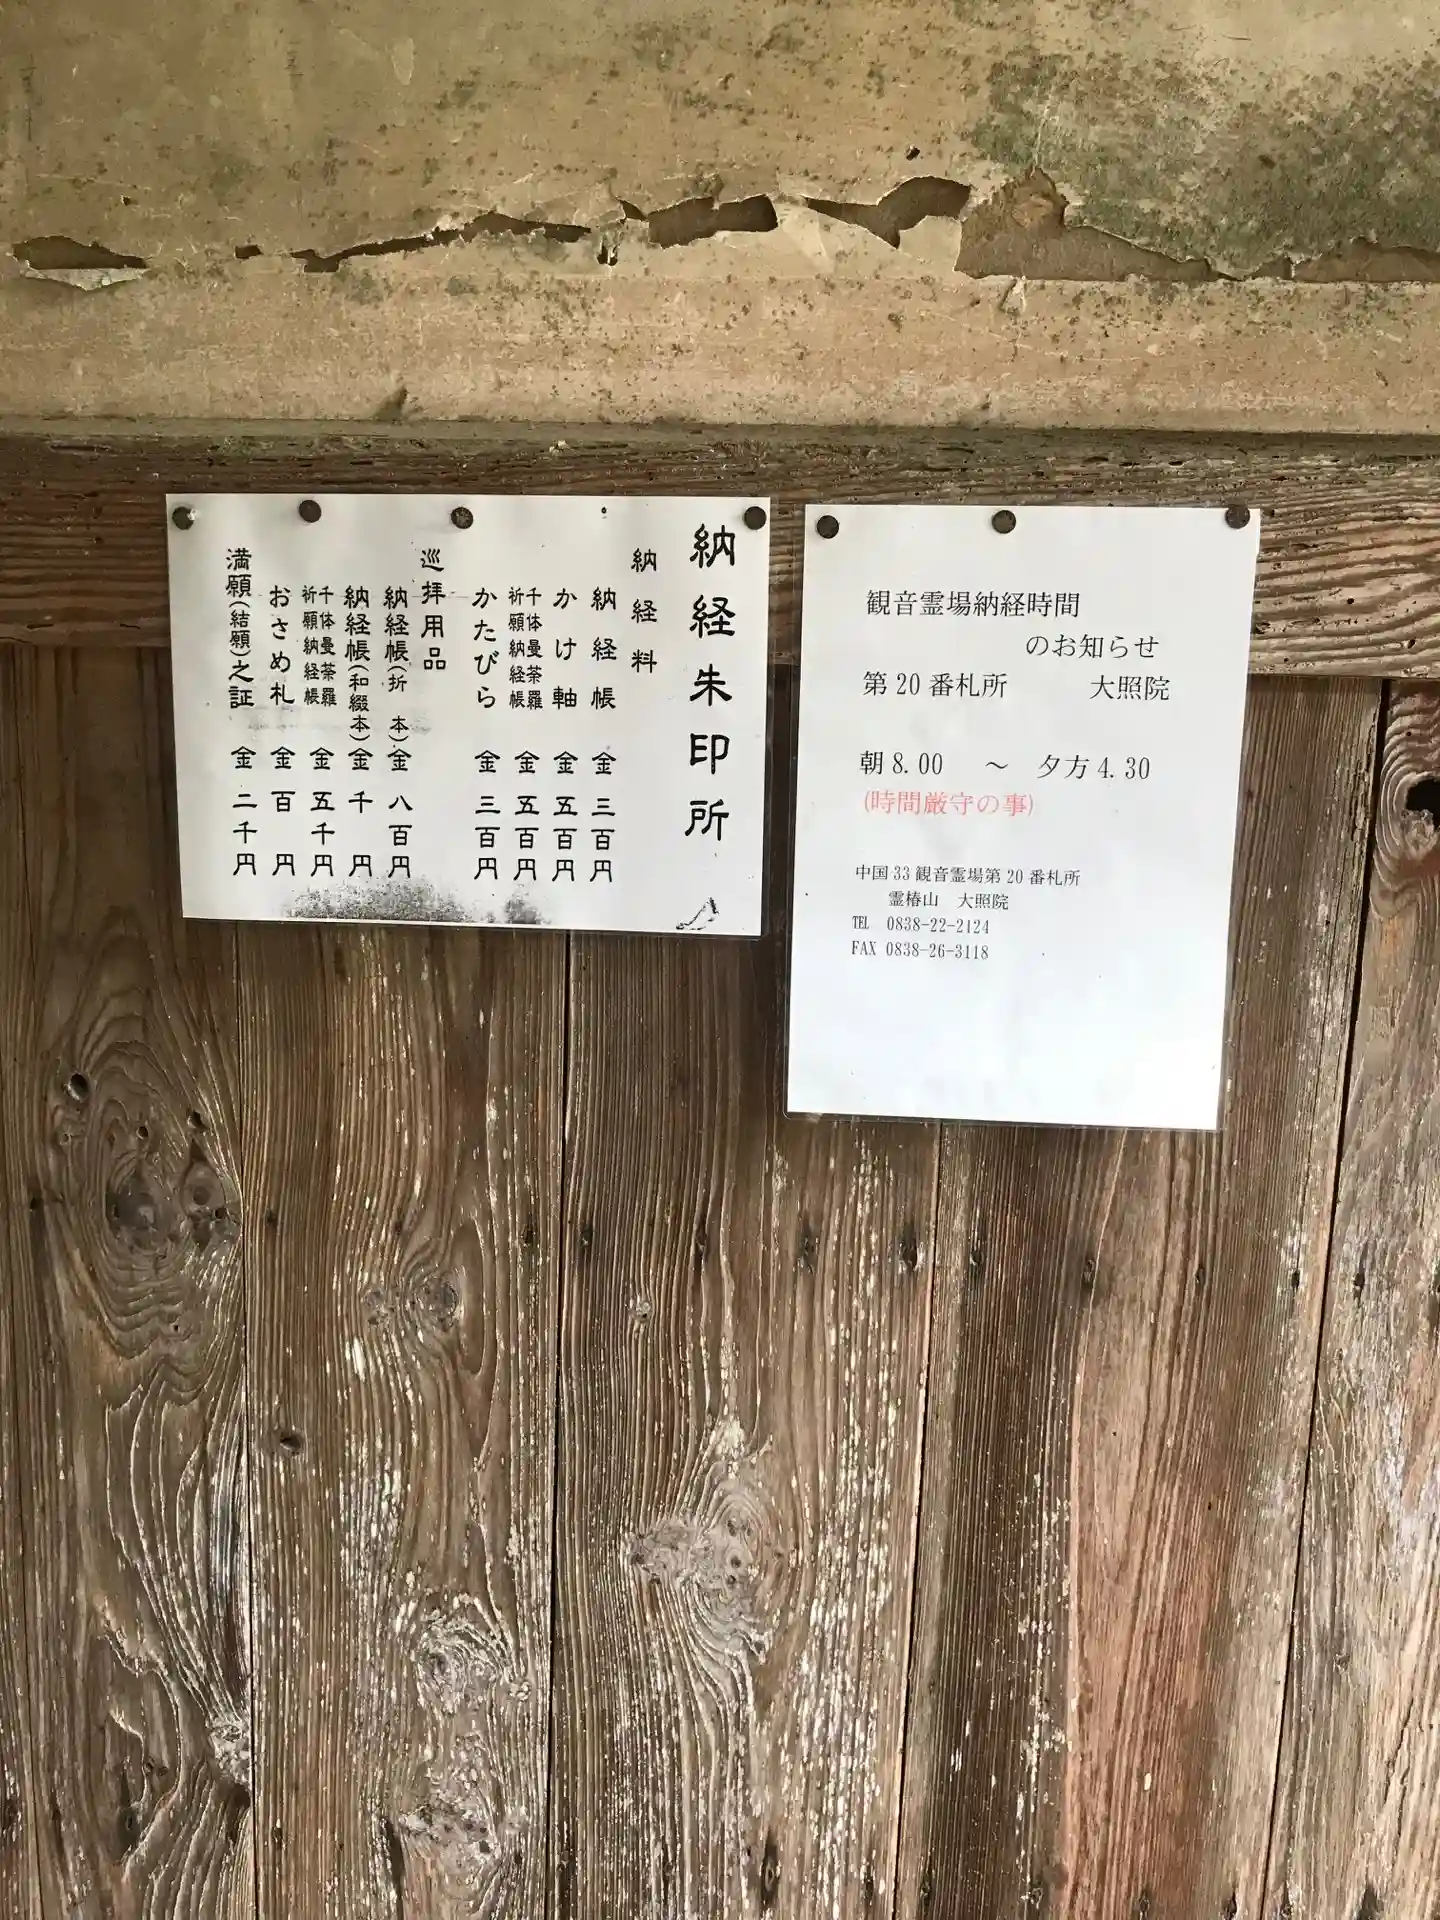 納経朱印所
納経料
納経帳 金三百円
かけ軸 金五百円
千体曼荼羅
祈願納経帳 金五百円
かたびら 金三百円
巡拝用品
納経帳(折本) 金八百円
納経帳(和綴本) 金千円
千体曼荼羅
祈願納経帳 金五千円
おさめ札 金百円
満願(結願)之証 金二千円
観音霊場納経時間
のお知らせ
第20番札所 大照院
朝8.00 ～ 夕方4.30
(時間厳守の事)
中国33観音霊場第20番札所
霊椿山 大照院
TEL 0838-22-2124
FAX 0838-26-3118